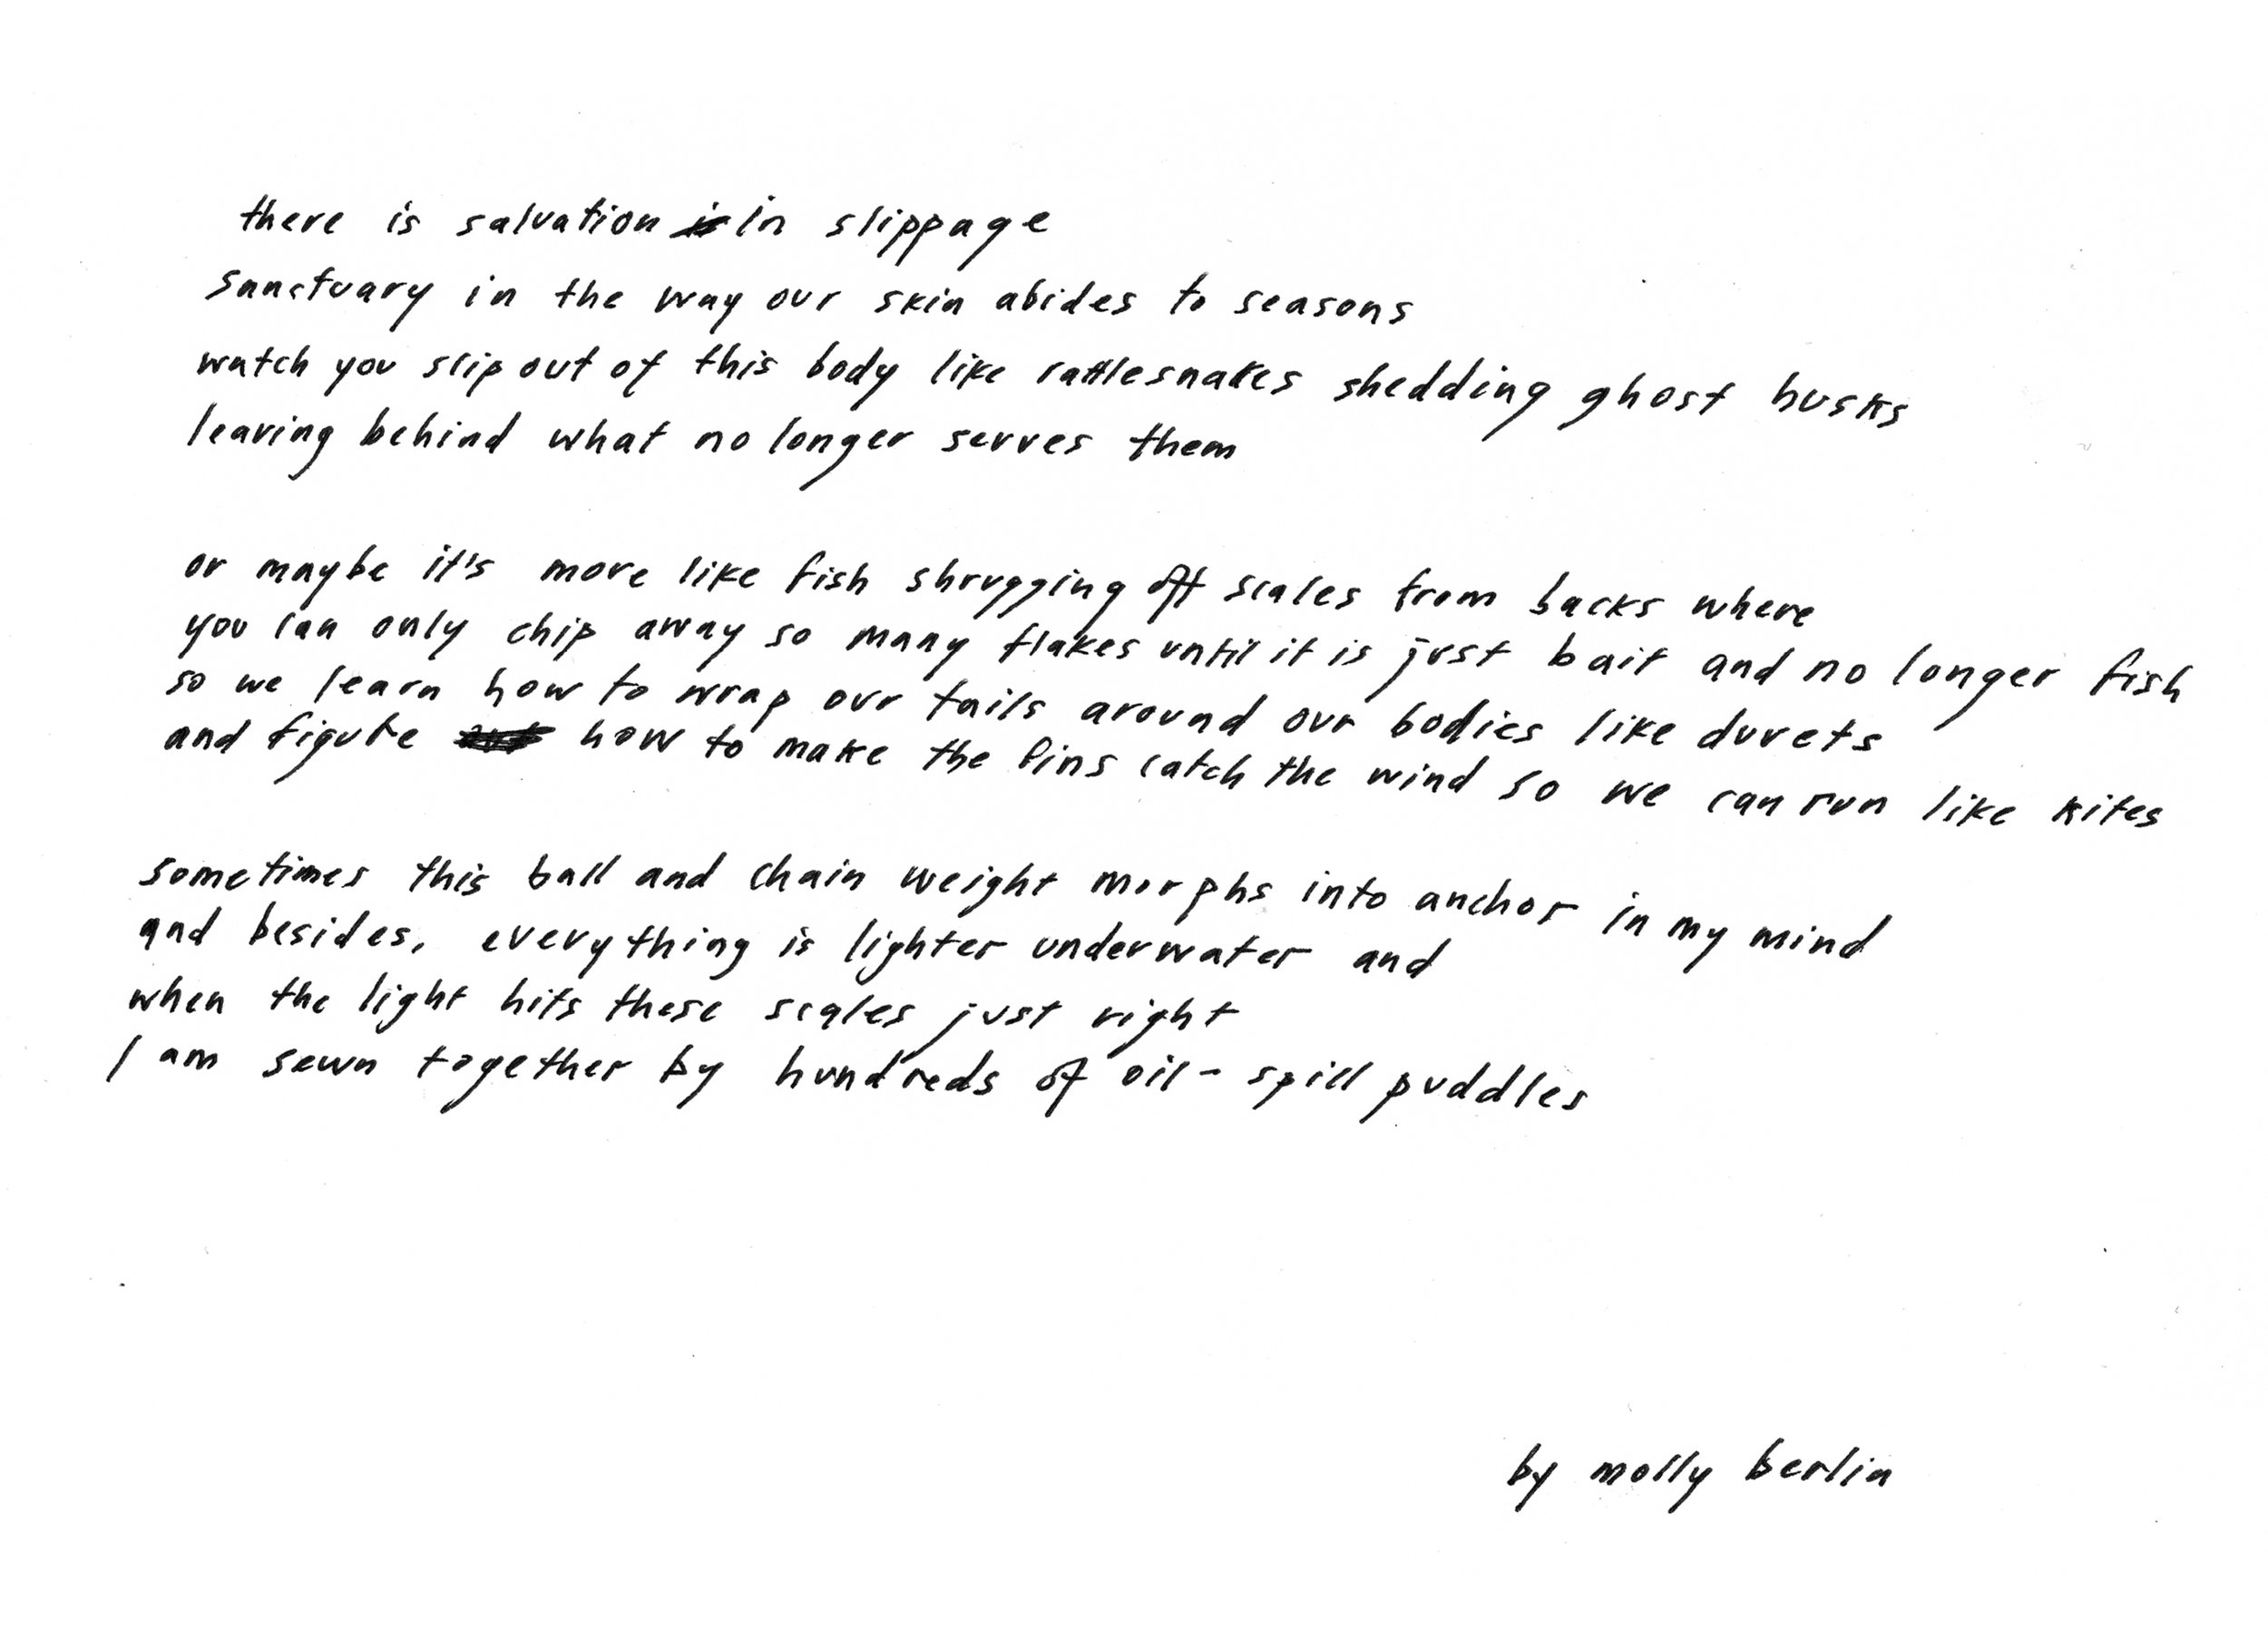 there is salvation in slippage
sanctuary in the way our skin abides to seasons
watch you slip out of this body like rattlesnakes shedding ghost husks
leaving behind what no longer serves them
or maybe it's more like fish shrugging off scales from backs where
you can only chip away so many flakes until it is just bait and no longer fish
so we learn how to wrap our tails around our bodies like duvets
and figure how to make the fins catch the wind so we can run like kites
sometimes this ball and chain weight morphs into anchor in my mind
and besides, everything is lighter underwater and
when the light hits these scales just right
I am sewn together by hundreds of oil-spill puddles
by molly berlin